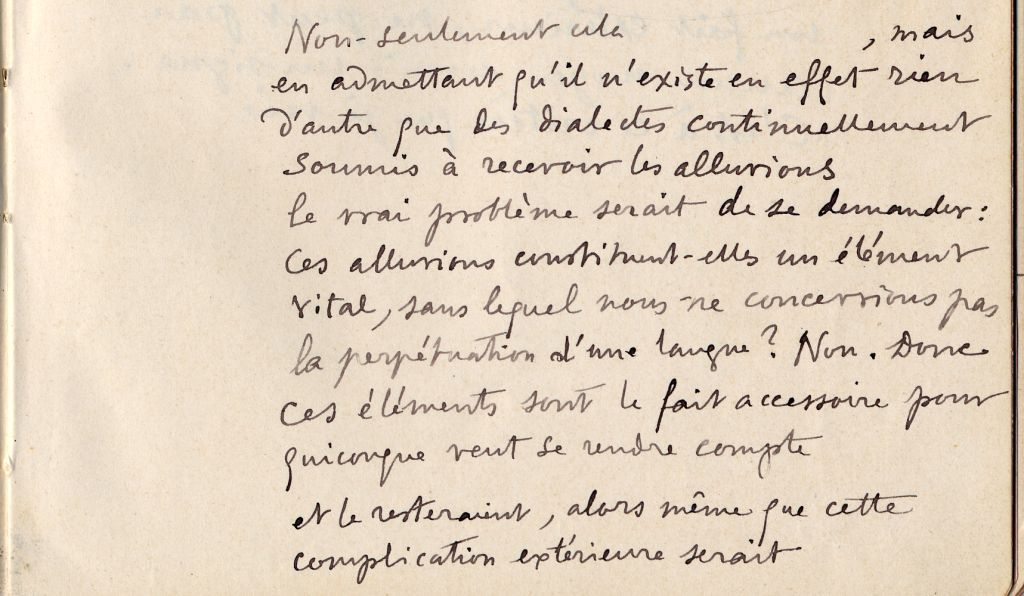 Non-seulement cela , mais
en admettant qu'il n'existe en effet rien
d'autre que des dialectes continuellement
soumis à recevoir les alluvions
le vrai problème serait de se demander :
Ces alluvions constituent-elles un élément
vital, sans lequel nous ne concevrions pas
la perpétuation d'une langue ? Non. Donc
ces éléments sont le fait accessoire pour
quiconque veut se rendre compte
et le resteraient, alors même que cette
complication extérieure serait